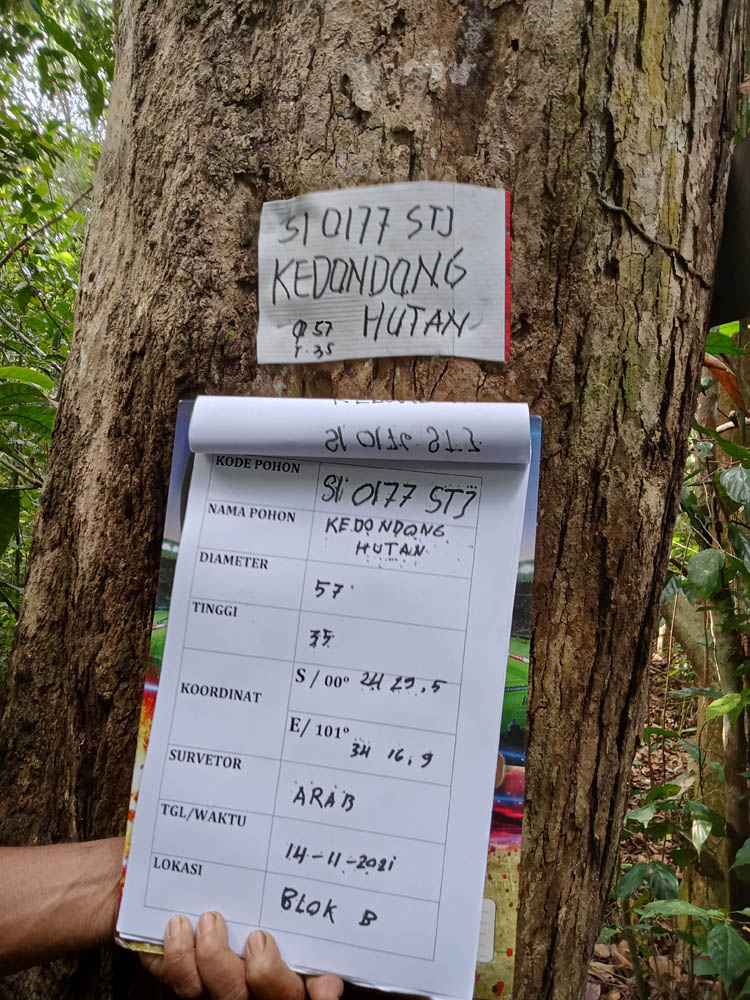 SI 0177 STJ
KEDONDONG
HUTAN
Ø 57
T. 35
KODE POHON SI 0177 STJ
NAMA POHON KEDONDONG
HUTAN
DIAMETER 57
TINGGI 35
KOORDINAT S / 00° 24 29,5
E/ 101° 34 16,9
SURVETOR ARAB
TGL/WAKTU 14-11-2021
LOKASI BLOK B